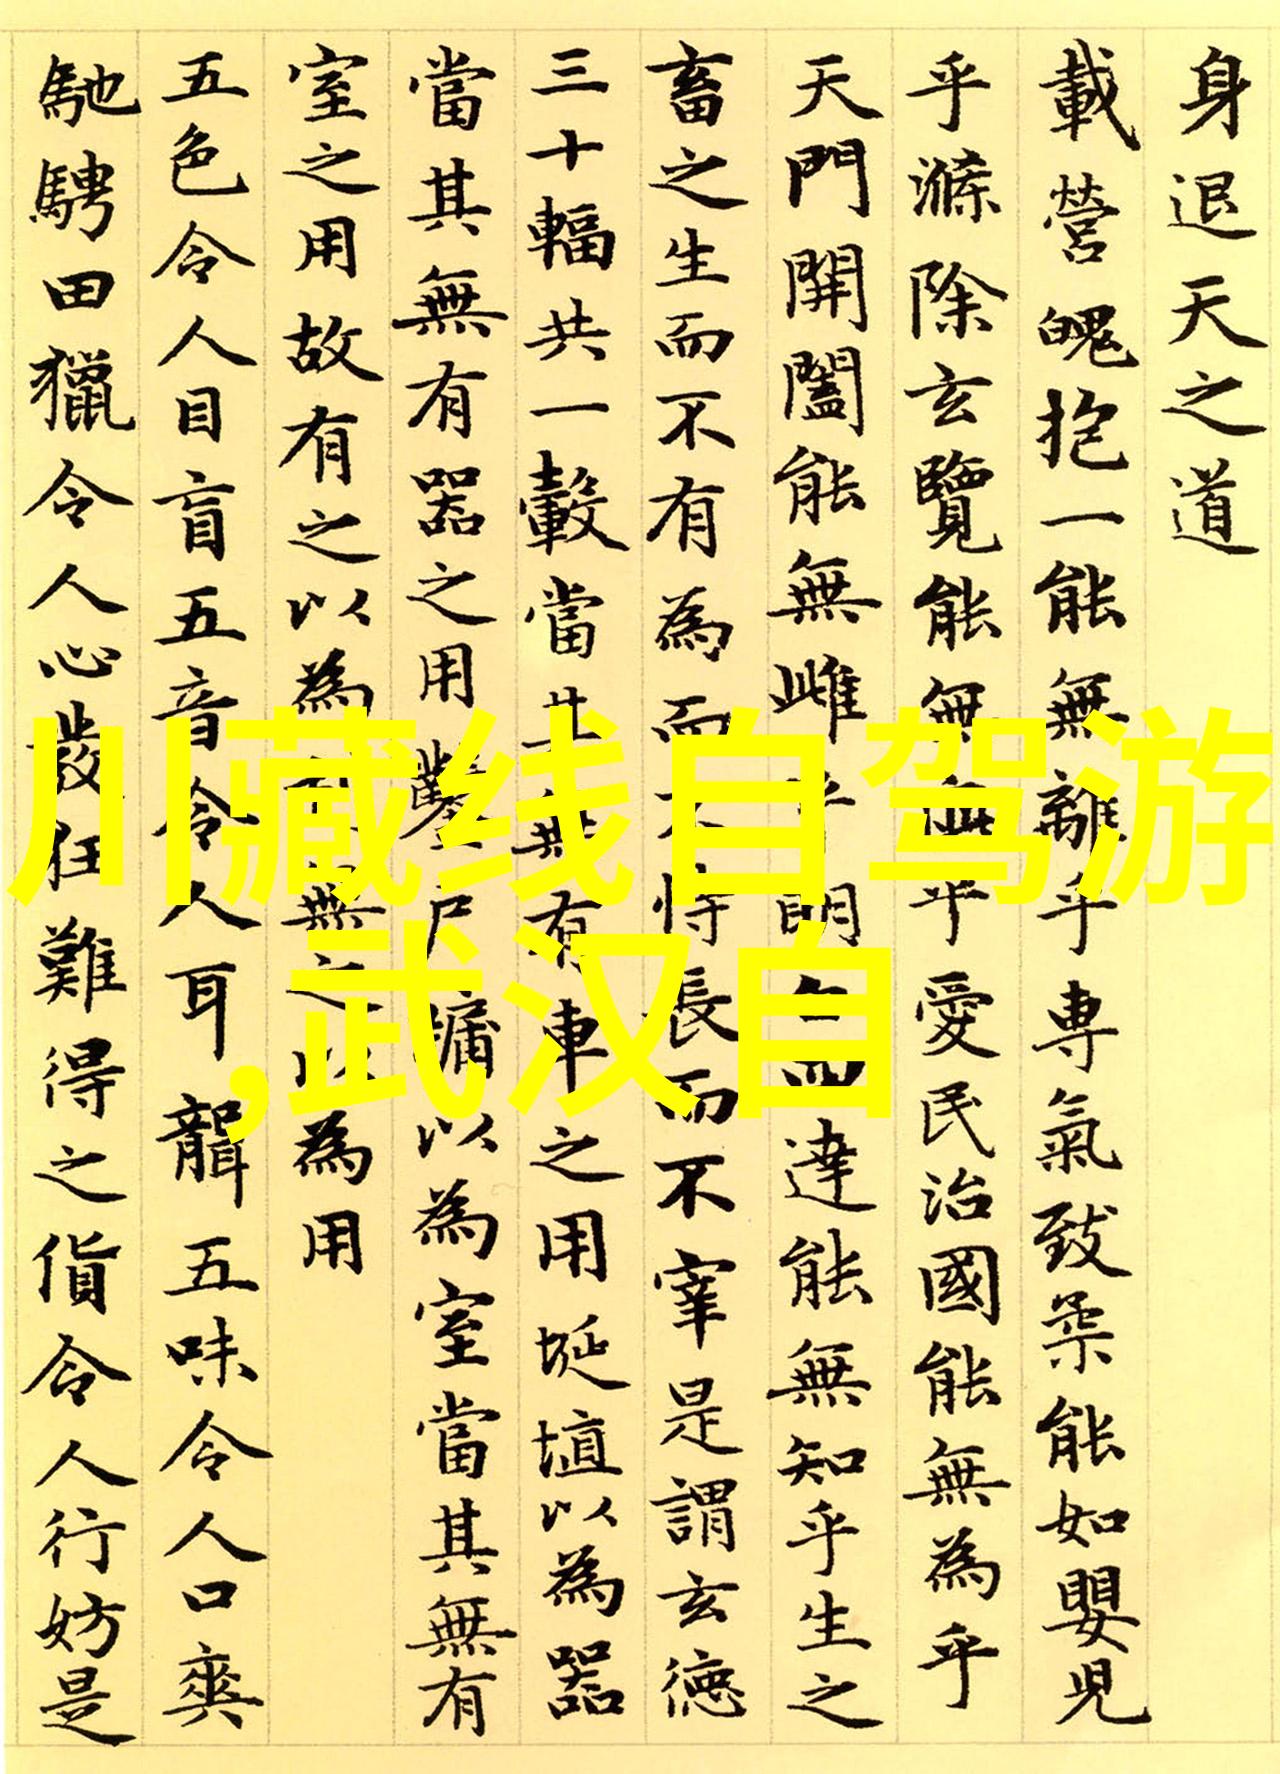 身退天之道
載營魄抱一能無離乎專氣致柔能如嬰兒
乎滌除玄覽能無疵乎愛民治國能無為乎
天門開闔能無雌乎明白四達能無知乎生之
畜之生而不有為而不恃長而不宰是謂玄德
三十輻共一轂當其無有車之用埏埴以為器
當其無有器之用鑿戶牖以為室當其無有
室之用故有之以為利無之以為用
五色令人目盲五音令人耳聾五味令人口爽
馳騁田獵令人心發狂難得之貨令人行妨是
川藏线自驾游
,武汉自